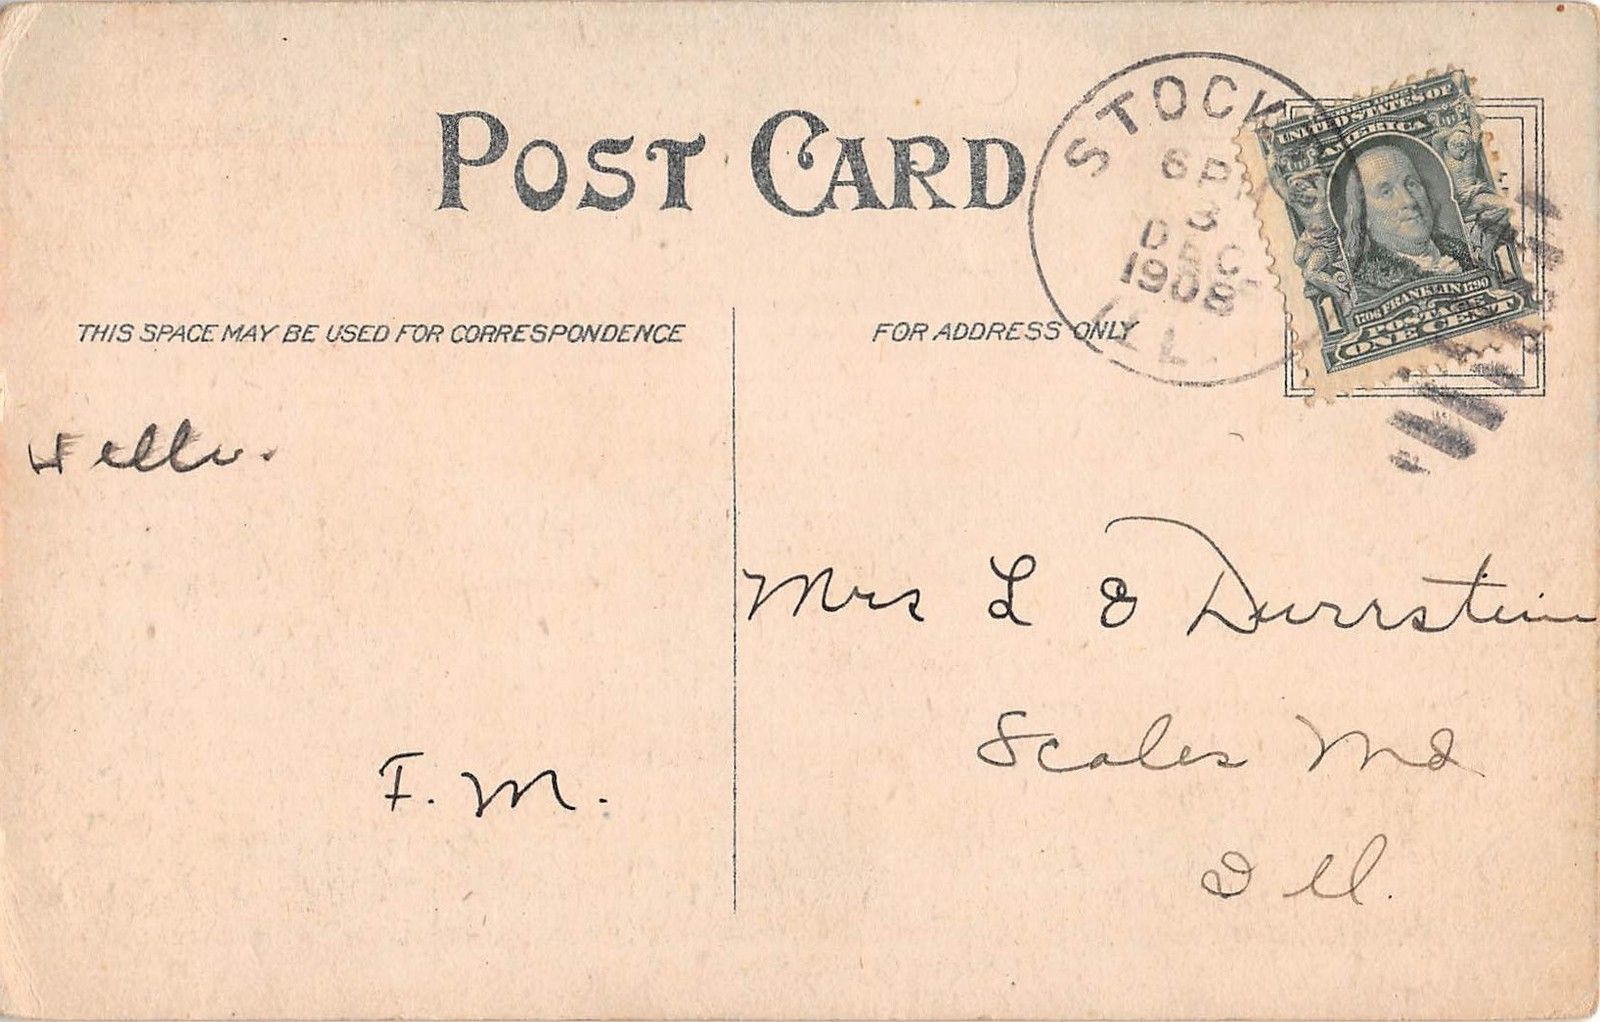 POST CARD
STOCK
6 P
3
DEC
1908
ILL.
SERIES 1902
UNITED STATES OF
AMERICA
1706 FRANKLIN 1790
1 1
POSTAGE
ONE CENT
THIS SPACE MAY BE USED FOR CORRESPONDENCE
FOR ADDRESS ONLY
Hello.
F. M.
Mrs L E Durrstein
Scales Md
Ill.